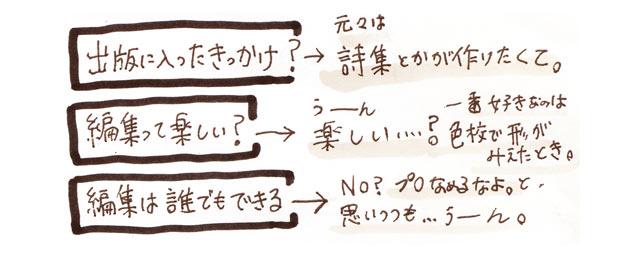 出版に入ったきっかけ?
→
元々は
詩集とかが作りたくて。
編集って楽しい?
→
うーん
楽しい…?
一番好きなのは
色校で形が
みえたとき。
編集は誰でもできる
→
NO? プロなめるなよ。と、
思いつつも…うーん。